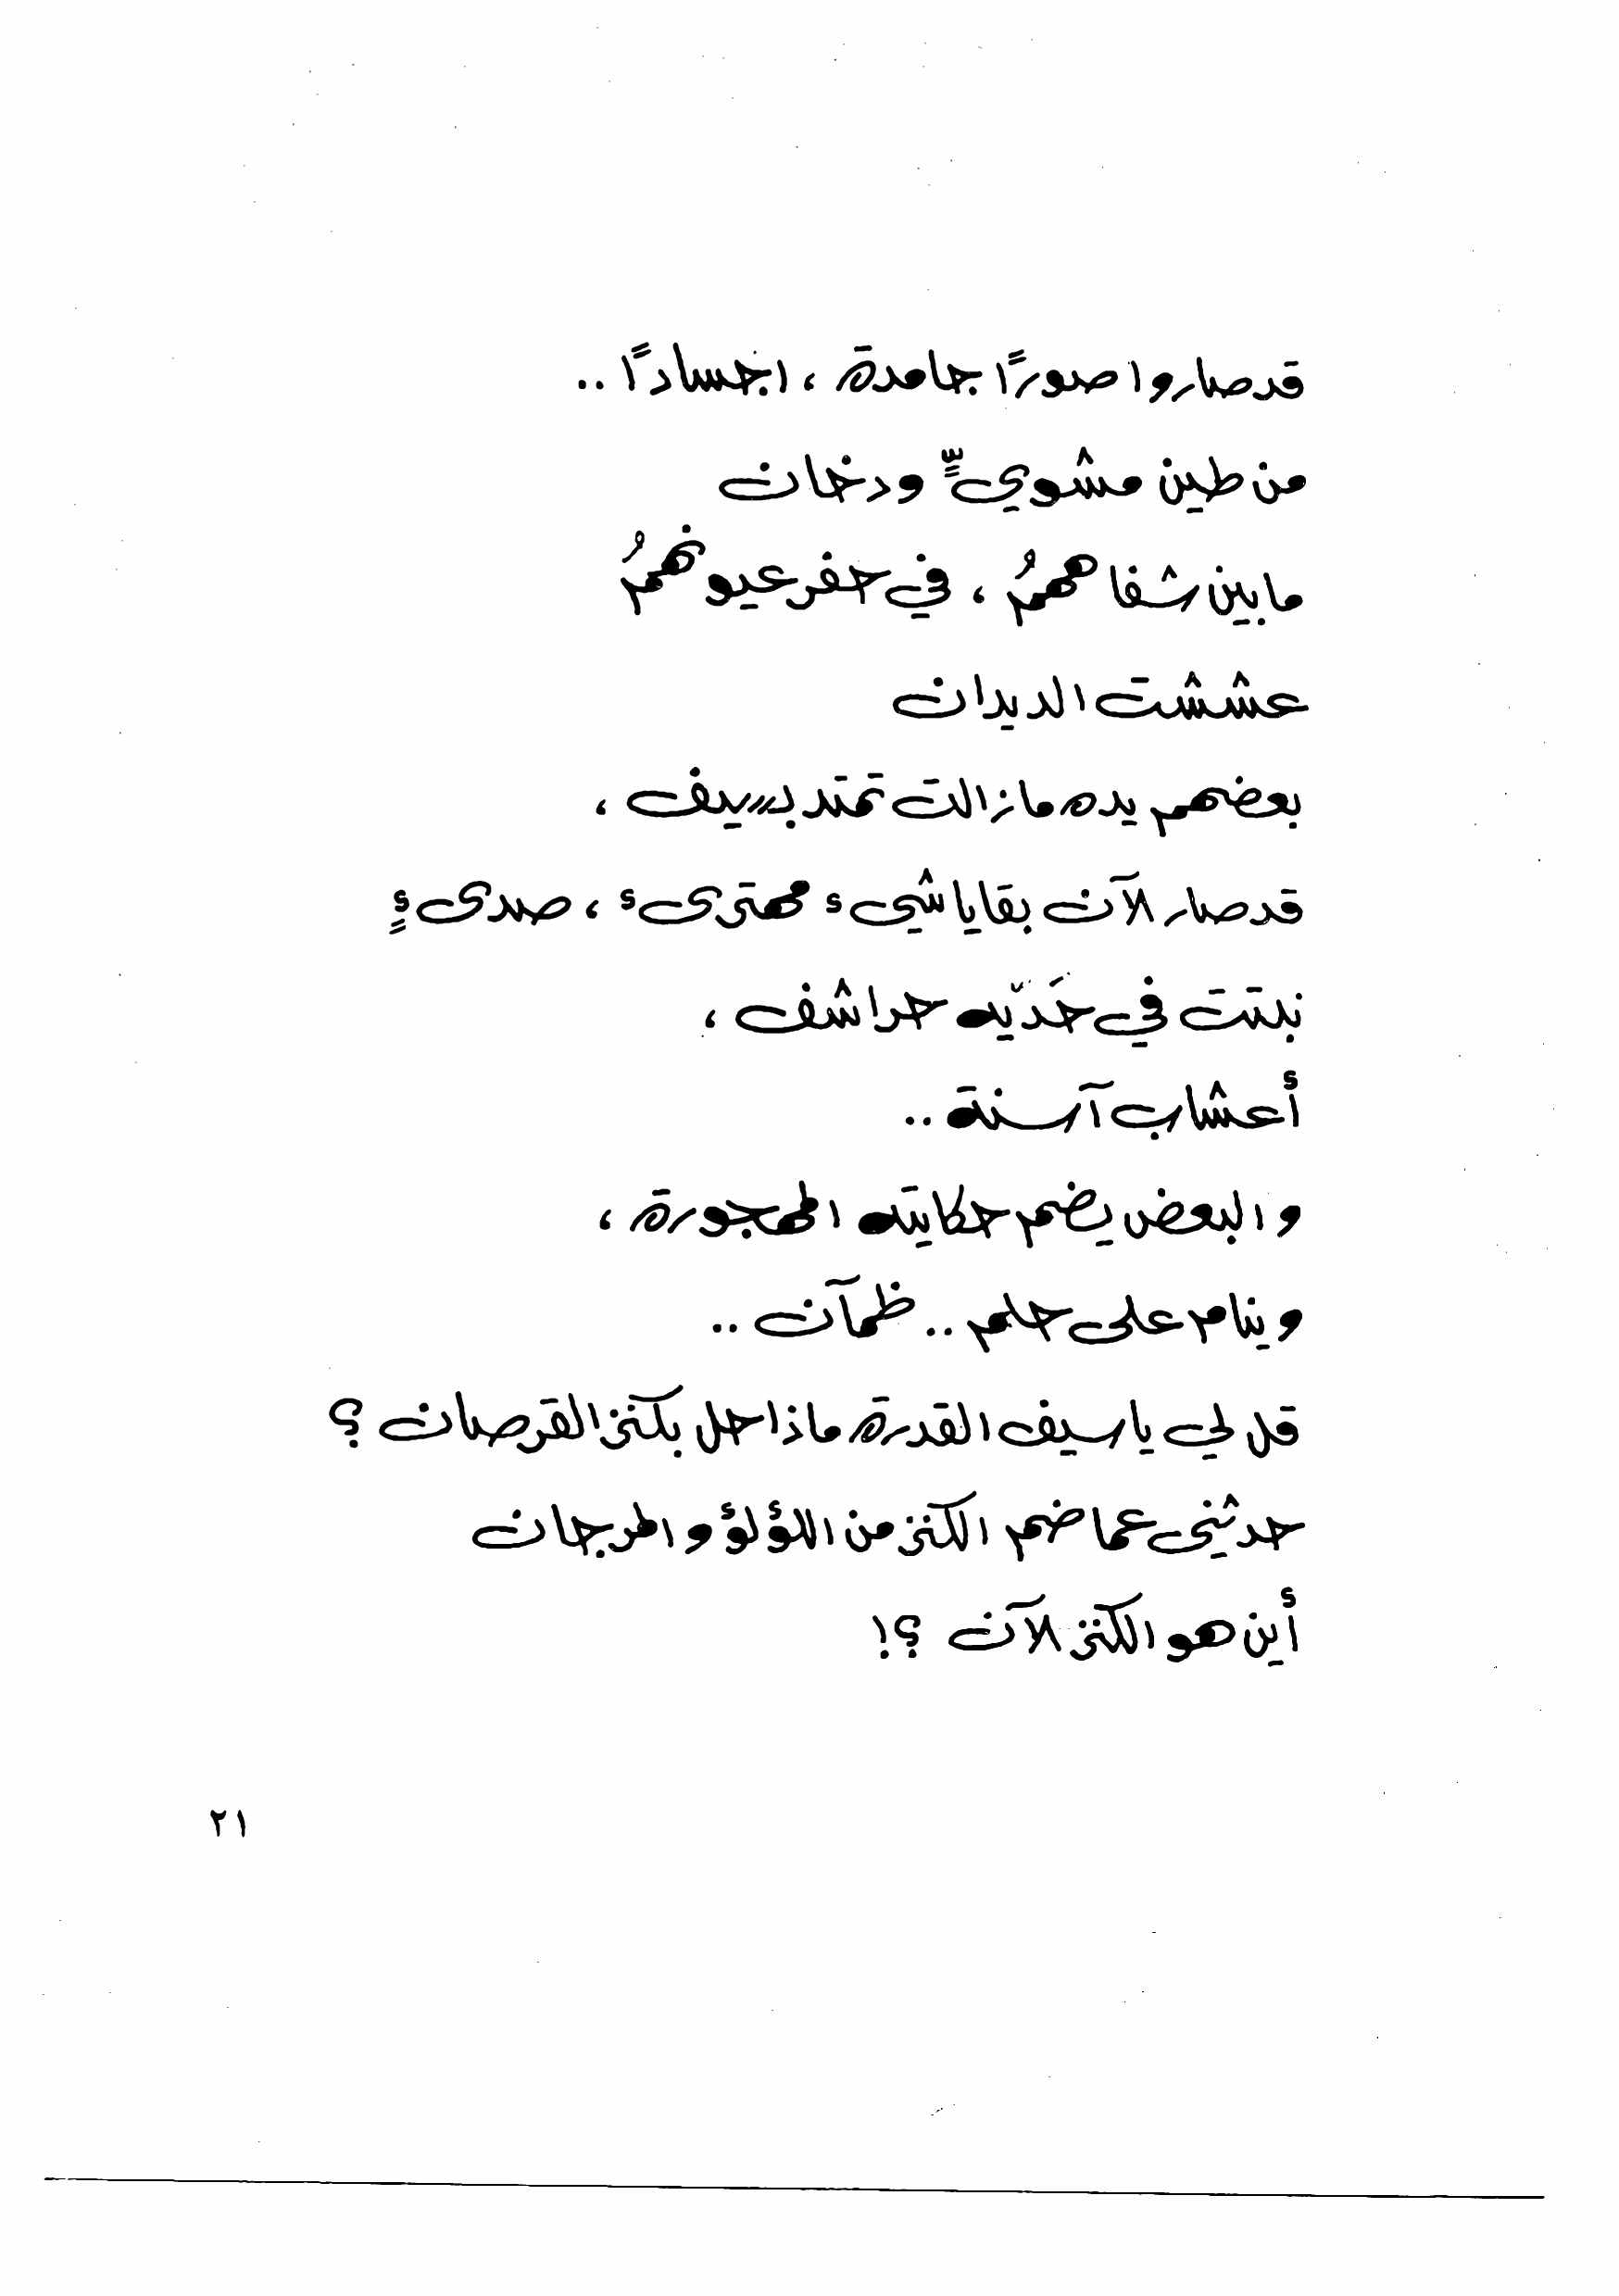 قد صاروا صورًا جامدة ، اجسادًا ..
من طين مشويٍّ ودخان
ما بين شفاههمُ ، في حفر عيونهمُ
عششت الديدان
بعضهم يده ما زالت تمتد بسيف ،
قد صار الآن بقايا شيء مهترىء ، صدىءٍ
نبتت في خَدّيه حراشف ،
أعشاب آسنة ..
والبعض يضم حكايته المهجورة ،
وينام على حلم .. ظمآن ..
قل لي يا سيف القدرة ماذا حل بكنز القرصان ؟
حدثني عما ضم الكنز من اللؤلؤ والمرجان
أين هو الكنز الآن ؟!
٢١